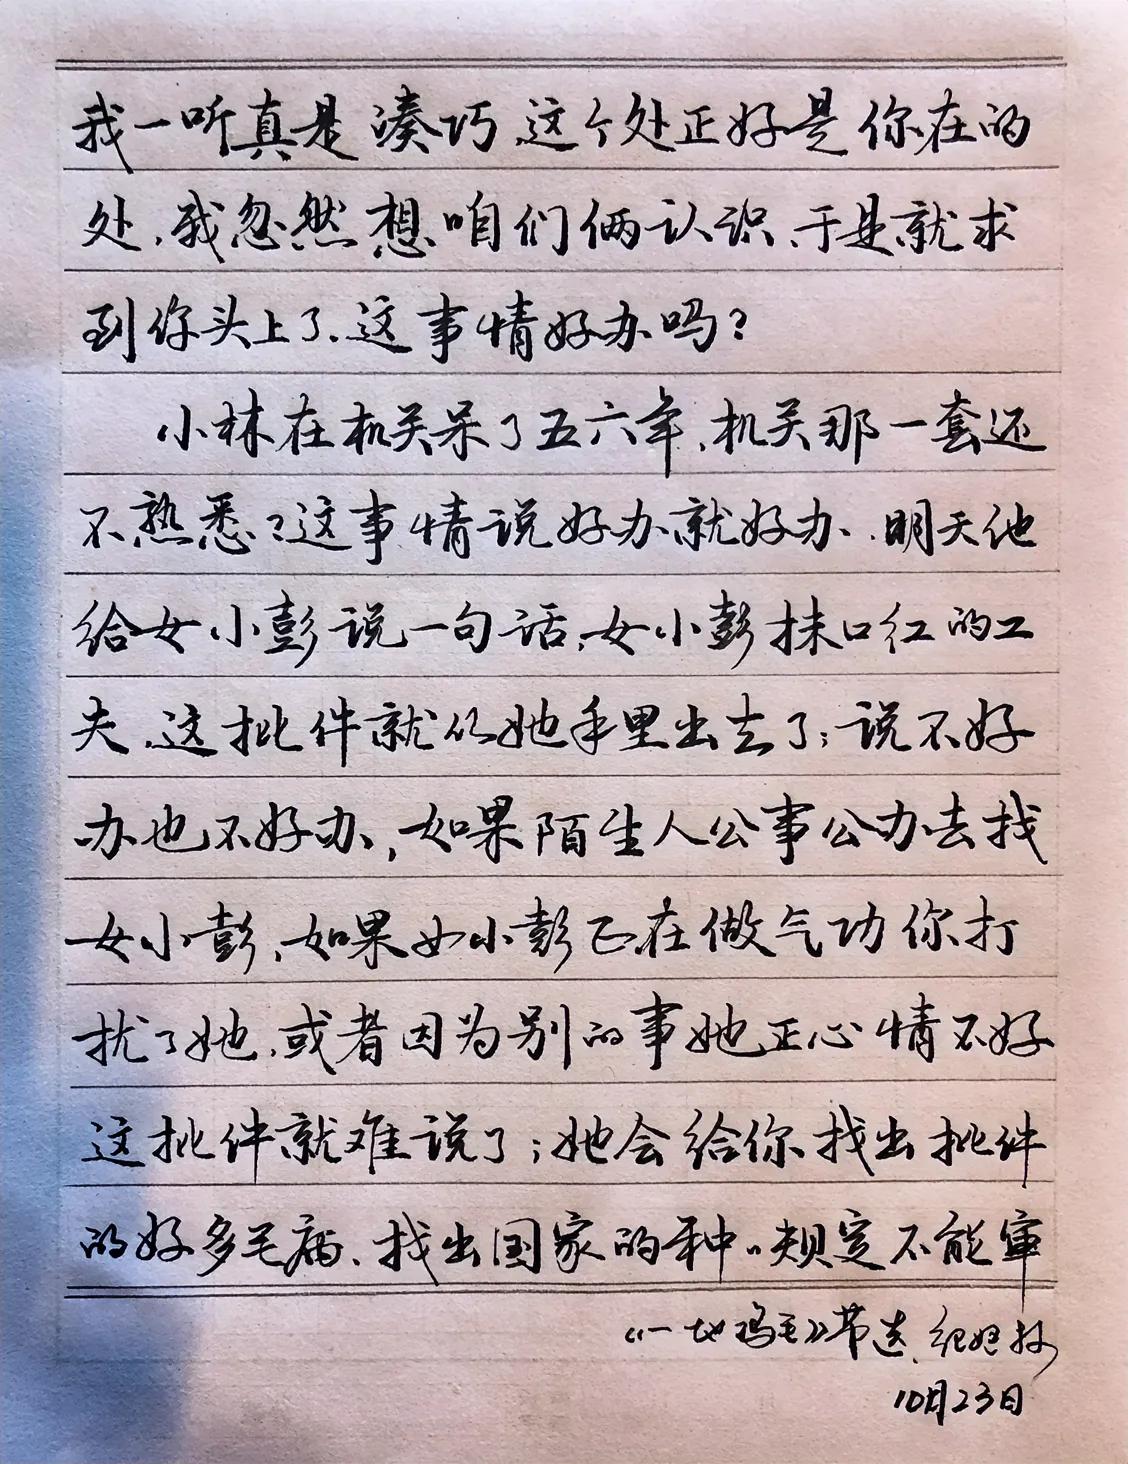 我一听真是凑巧，这个处正好是你在的
处，我忽然想咱们俩认识，于是就求
到你头上了，这事情好办吗？
小林在机关呆了五六年，机关那一套还
不熟悉？这事情说好办就好办，明天他
给女小彭说一句话，女小彭抹口红的工
夫，这批件就从她手里出去了；说不好
办也不好办，如果陌生人公事公办去找
女小彭，如果女小彭正在做气功你打
扰了她，或者因为别的事她正心情不好
这批件就难说了；她会给你找出批件
的好多毛病，找出国家的种种规定不能审
《一地鸡毛》节选，
10月23日